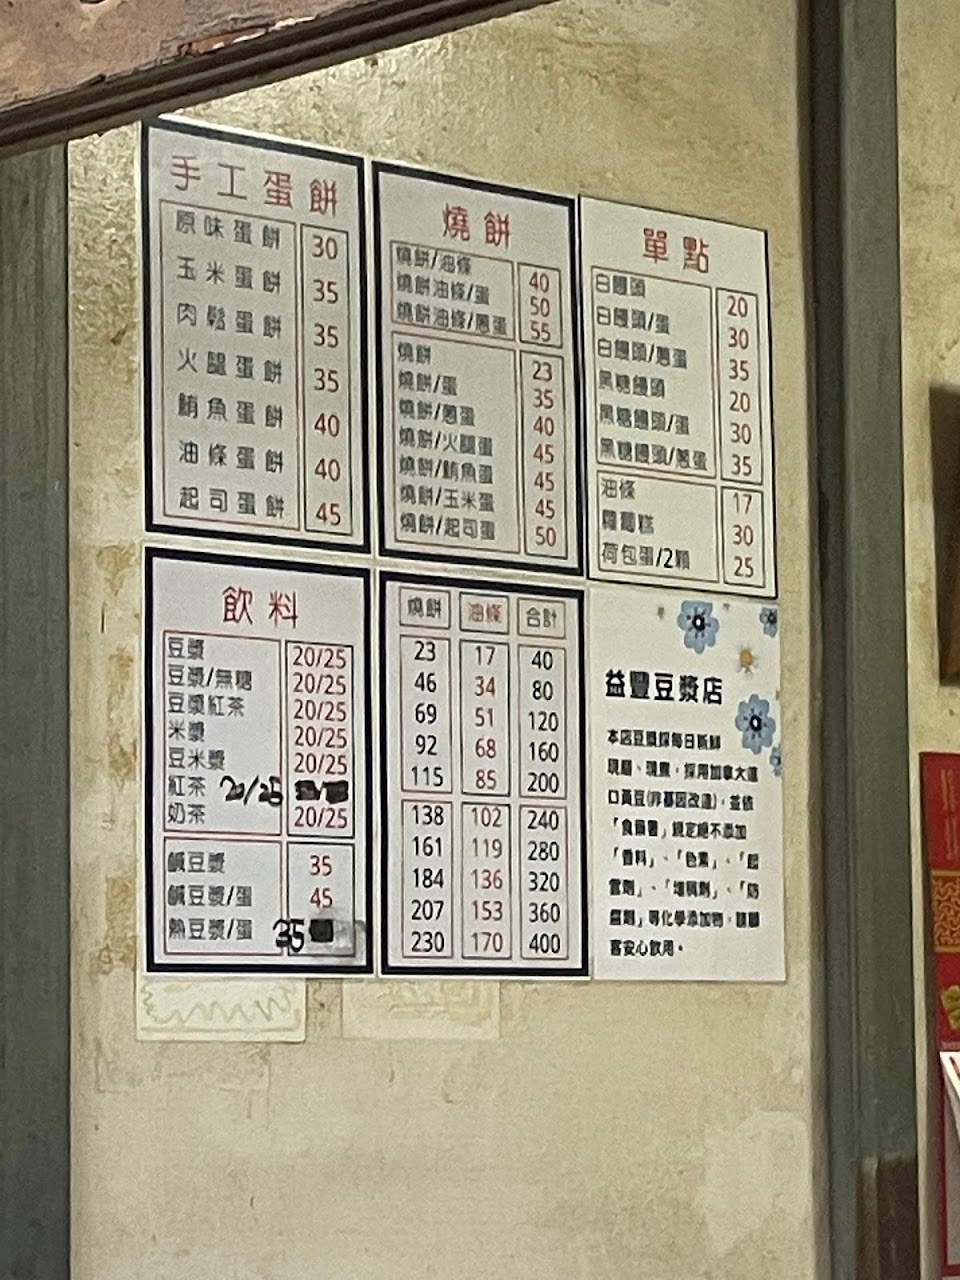 手工蛋餅
原味蛋餅 30
玉米蛋餅 35
肉鬆蛋餅 35
火腿蛋餅 35
鮪魚蛋餅 40
油條蛋餅 40
起司蛋餅 45
燒餅
燒餅/油條 40
燒餅油條/蛋 50
燒餅油條/蔥蛋 55
燒餅 23
燒餅/蛋 35
燒餅/蔥蛋 40
燒餅/火腿蛋 45
燒餅/鮪魚蛋 45
燒餅/玉米蛋 45
燒餅/起司蛋 50
單點
白饅頭 20
白饅頭/蛋 30
白饅頭/蔥蛋 35
黑糖饅頭 20
黑糖饅頭/蛋 30
黑糖饅頭/蔥蛋 35
油條 17
蘿蔔糕 30
荷包蛋/2顆 25
飲料
豆漿 20/25
豆漿/無糖 20/25
豆漿紅茶 20/25
米漿 20/25
豆米漿 20/25
紅茶 20/25
奶茶 20/25
鹹豆漿 35
鹹豆漿/蛋 45
熱豆漿/蛋 35
燒餅 油條 合計
23 17 40
46 34 80
69 51 120
92 68 160
115 85 200
138 102 240
161 119 280
184 136 320
207 153 360
230 170 400
益豐豆漿店
本店豆漿採每日新鮮
現磨、現煮,採用加拿大進
口黃豆(非基因改造),並依
「食藥署」規定絕不添加
「香料」、「色素」、「起
雲劑」、「增稠劑」、「防
腐劑」等化學添加物,讓顧
客安心飲用。